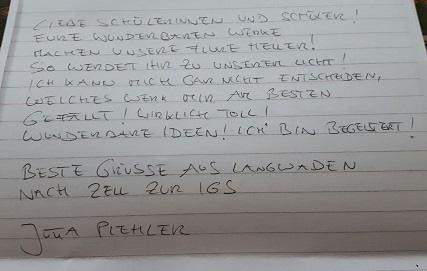 LIEBE SCHÜLERINNEN UND SCHÜLER!
EURE WUNDERBAREN WERKE
MACHEN UNSERE FLURE HELLER!
SO WERDET IHR ZU UNSEREM LICHT!
ICH KANN MICH GAR NICHT ENTSCHEIDEN,
WELCHES WERK MIR AM BESTEN
GEFÄLLT! WIRKLICH TOLL!
WUNDERBARE IDEEN! ICH BIN BEGEISTERT!
BESTE GRÜSSE AUS LANGWADEN
NACH ZELL ZUR IGS
PIEHLER